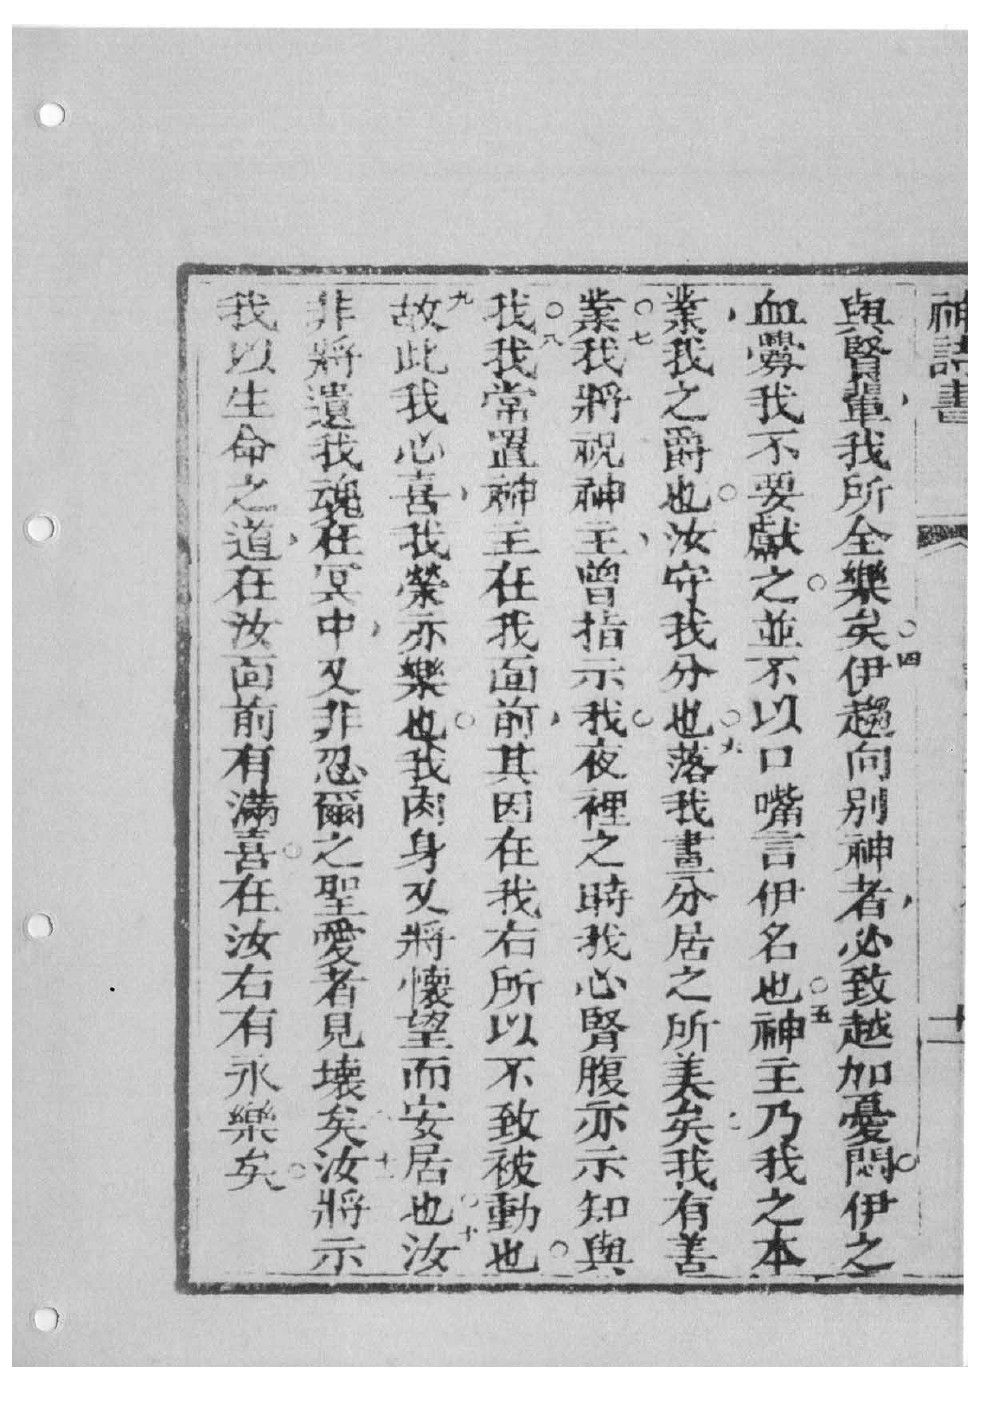 神詩書
十二
與賢輩我所全樂矣。四伊趨向別神者必致越加憂悶。伊之
血釁我不要獻之。並不以口嘴言伊名也。五神主乃我之本
業我之爵也。汝守我分也。六落我畫分居之所美矣我有善
業。七我將祝神主曾指示我。夜裡之時我心腎腹亦示知與
我。八我常置神主在我面前其因在我右所以不致被動也。
九故此我心喜我榮亦樂也。我肉身又將懷望而安居也。十汝
非將遺我魂在冥中又非忍爾之聖愛者見壞矣。十一汝將示
我以生命之道在汝面前有滿喜。在汝右有永樂矣。